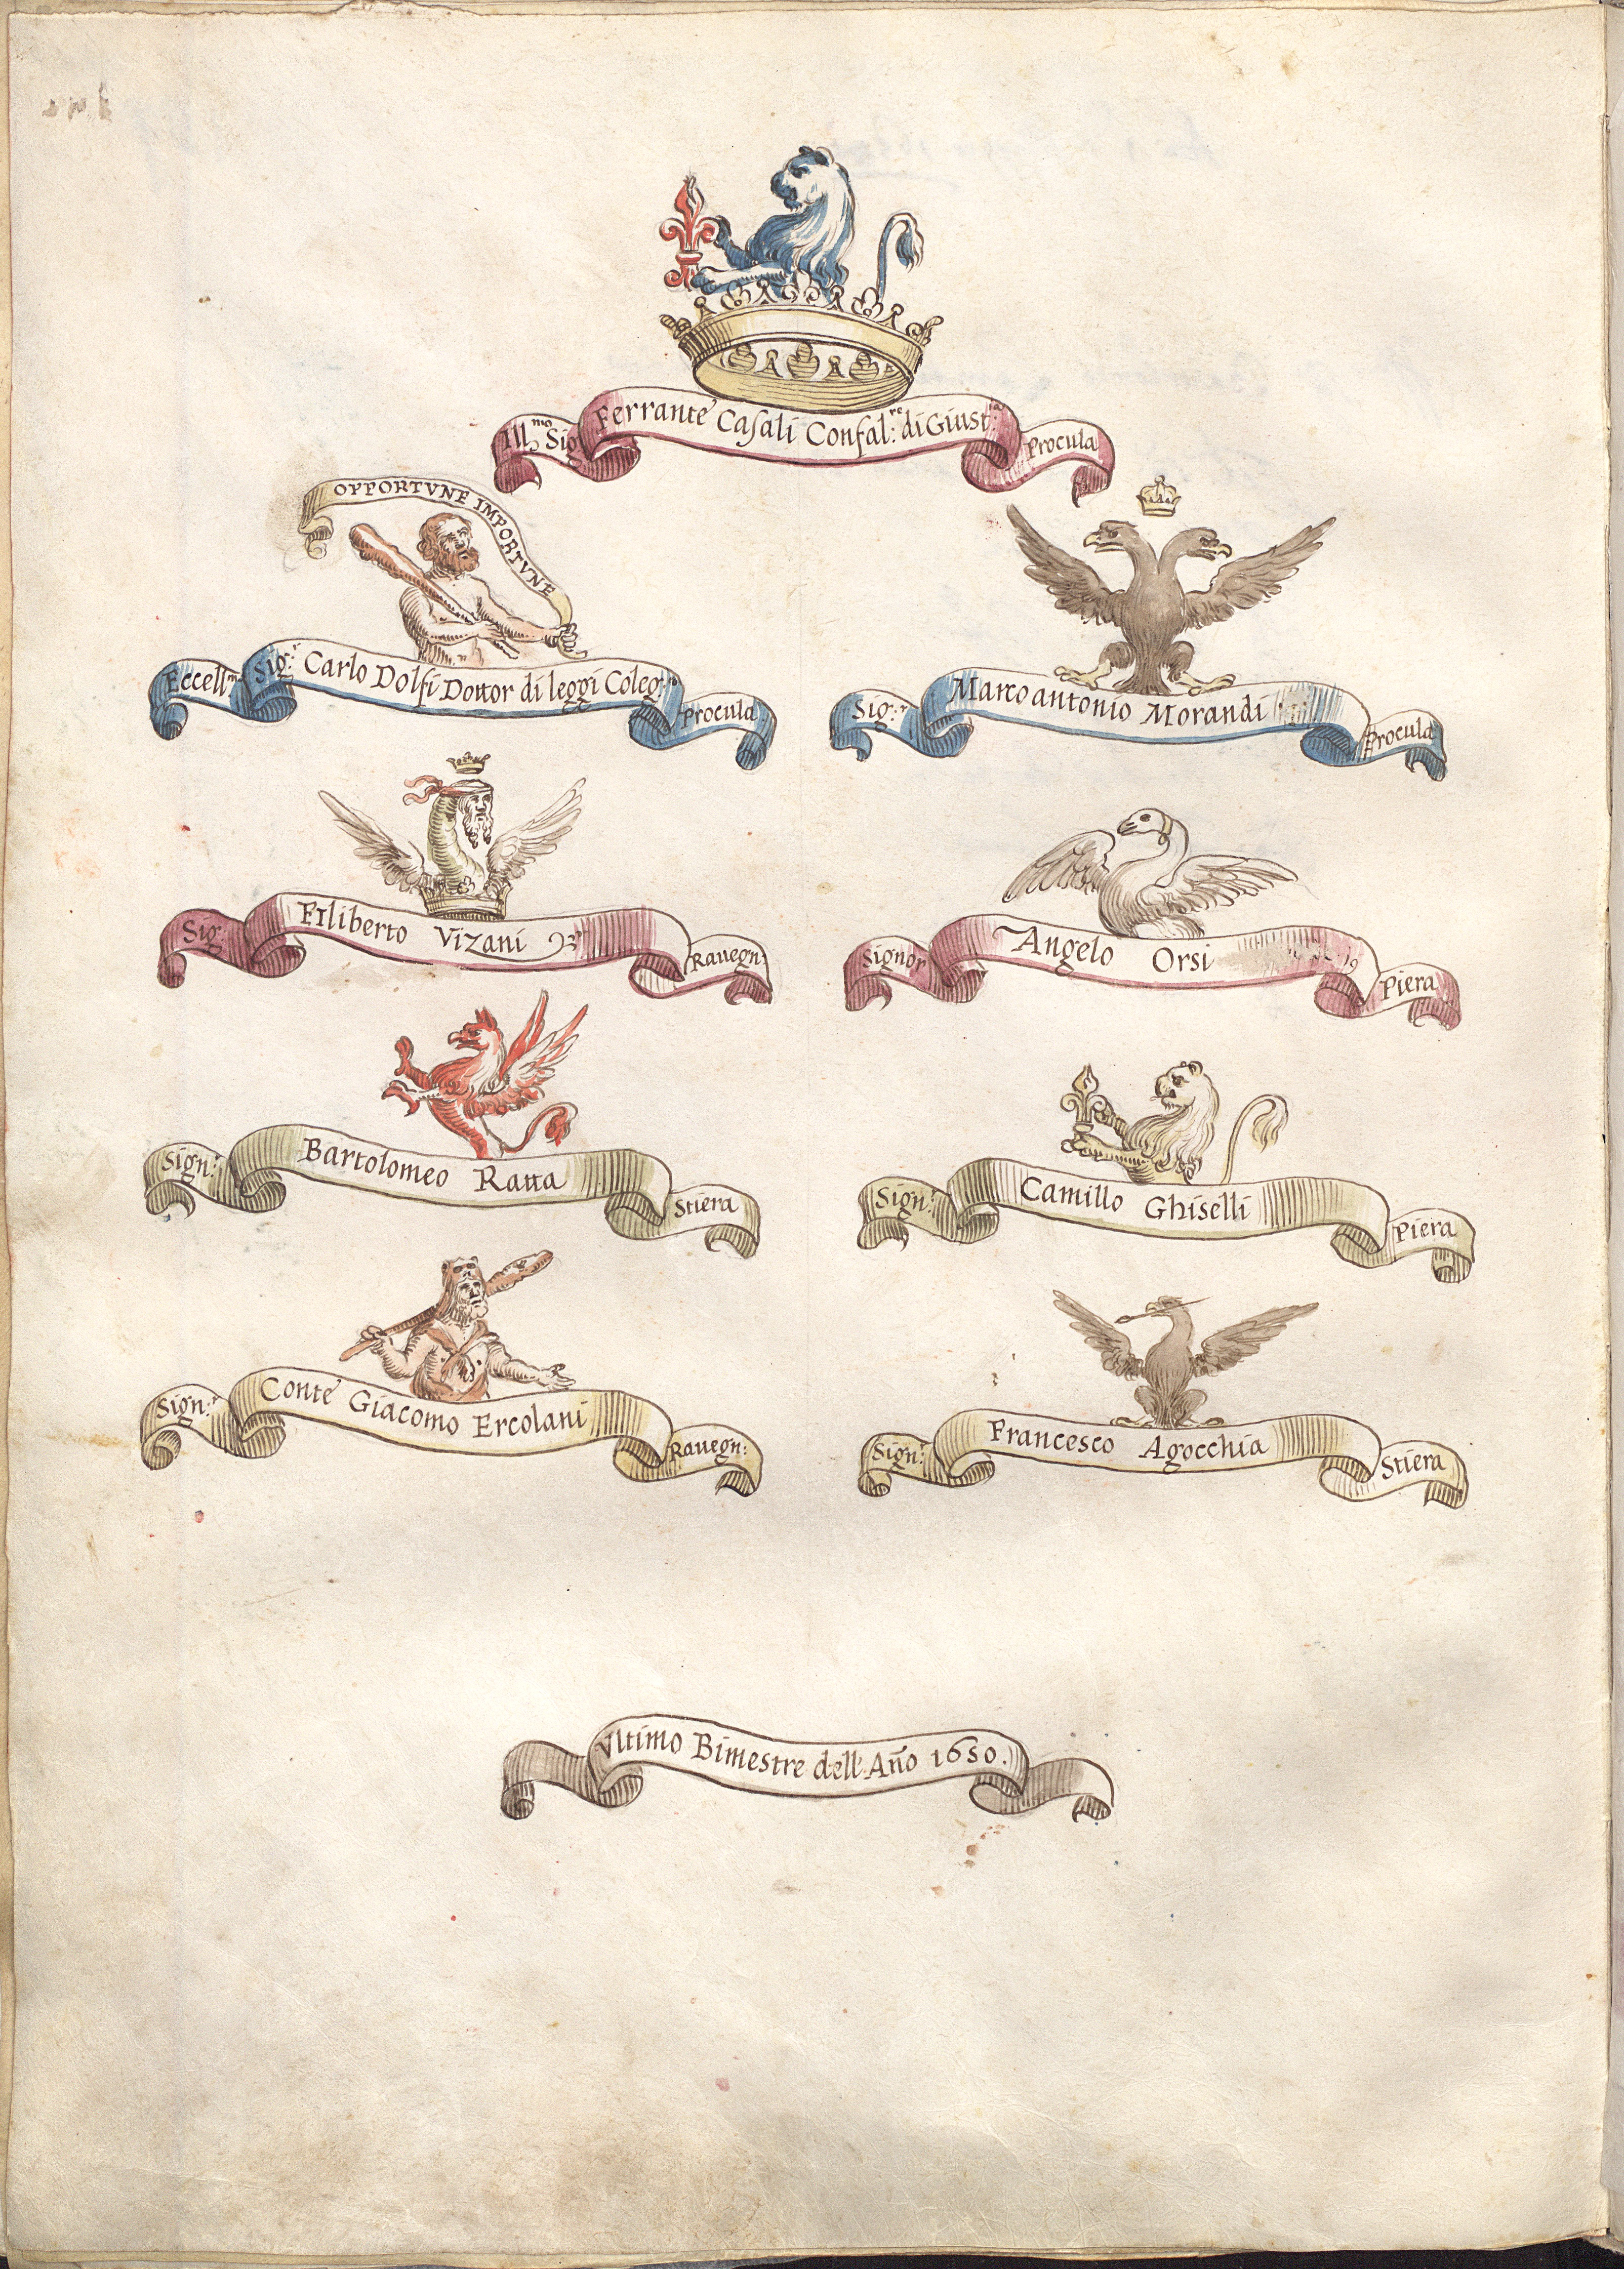 Ill.mo Sig Ferrante Casali Confal.re di Giust.a Procula
OPPORTVNE IMPORTVNE
Eccell.m Sig.r Carlo Dolfi Dottor di leggi Coleg.to Procula
Sig.r Marcoantonio Morandi Procula
Sig. Filiberto Vizani Rauegn.
Signor Angelo Orsi Piera
Sign.r Bartolomeo Ratta Stiera
Sign.r Camillo Ghiselli Piera
Sign.r Conte Giacomo Ercolani Rauegn:
Sign.r Francesco Agocchia Stiera
Vltimo Bimestre dell'Año 1650.